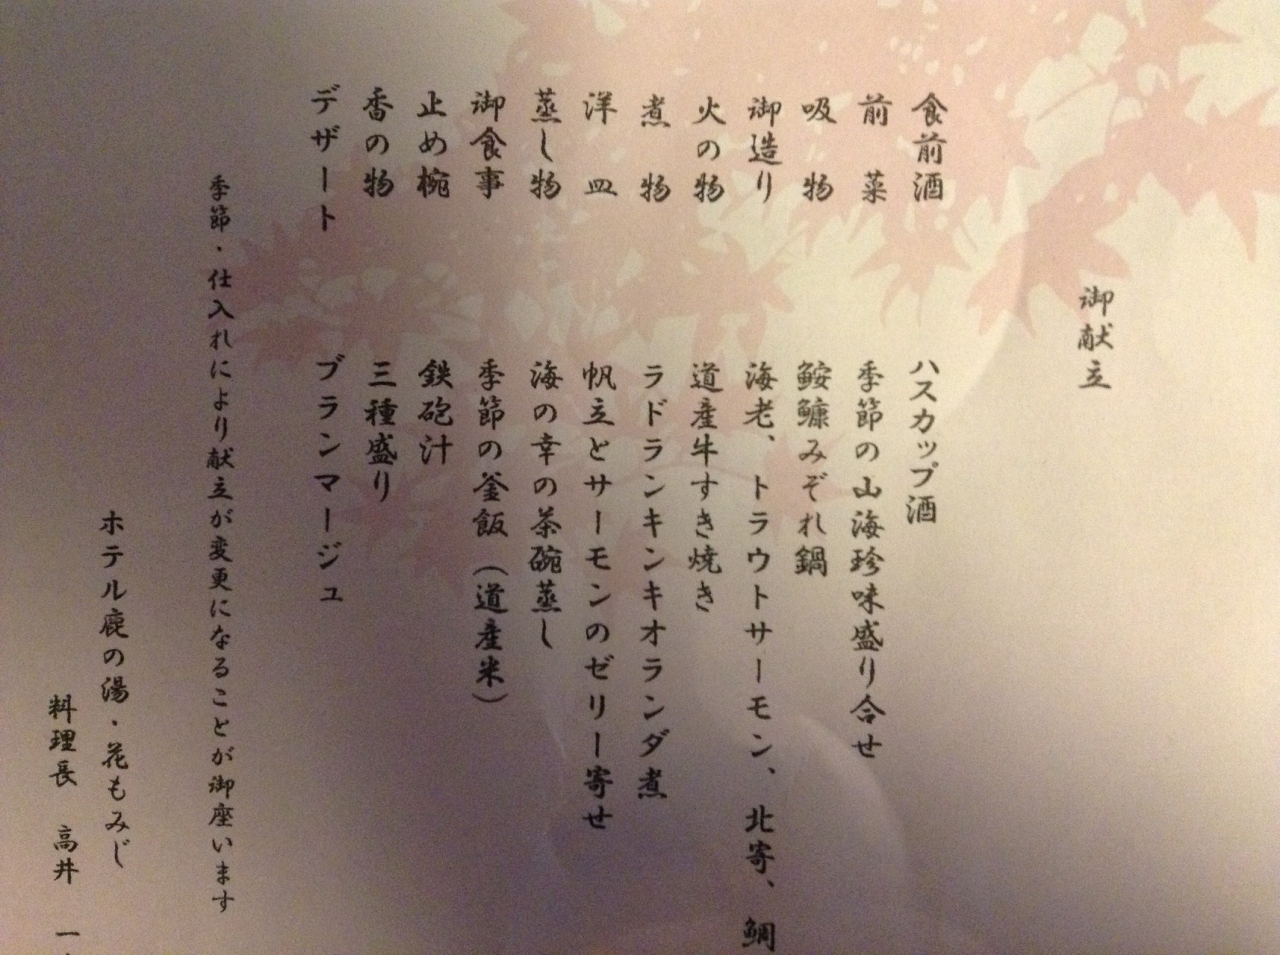 御献立
食前酒 ハスカップ酒
前菜 季節の山海珍味盛り合せ
吸物 鮟鱇みぞれ鍋
御造り 海老、トラウトサーモン、北寄、鯛
火の物 道産牛すき焼き
煮物 ラドランキンキオランダ煮
洋皿 帆立とサーモンのゼリー寄せ
蒸し物 海の幸の茶碗蒸し
御食事 季節の釜飯（道産米）
止め椀 鉄砲汁
香の物 三種盛り
デザート ブランマージュ
季節・仕入れにより献立が変更になることが御座います
ホテル鹿の湯・花もみじ
料理長 高井 一